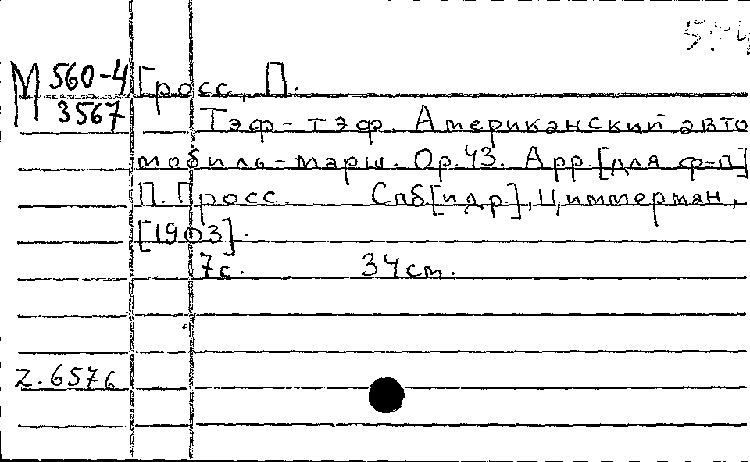 М 560-4 Гросс, П.
3567
Тэф-тэф. Американский авто
мобиль-марш. Op. 43. Арр. [для ф-п]
П. Гросс. Спб [и др.], Циммерман,
[1903].
7с. 34 см.
Z. 6576